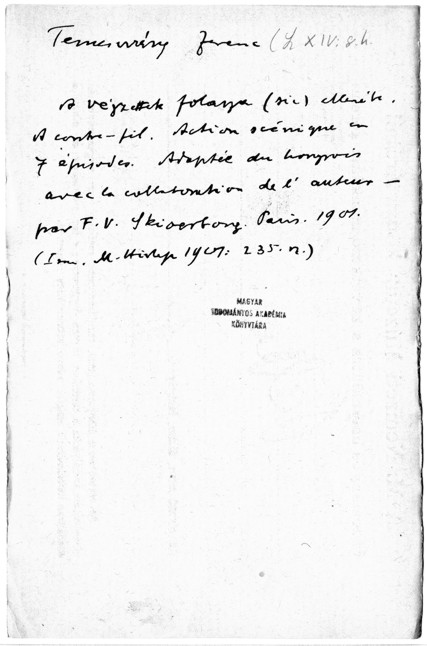 Temesváry Ferenc (L XIV: 8. h.
A végzettek folyasa (sic) ellenék.
A contre-fil. Action scénique en
7 épisodes. Adaptée du hongrois
avec la collaboration de l'auteur —
par F. V. Paris. 1901.
(Ism. M. Hirlap 1901: 235. n.)
MAGYAR
TUDOMÁNYOS AKADÉMIA
KÖNYVTÁRA